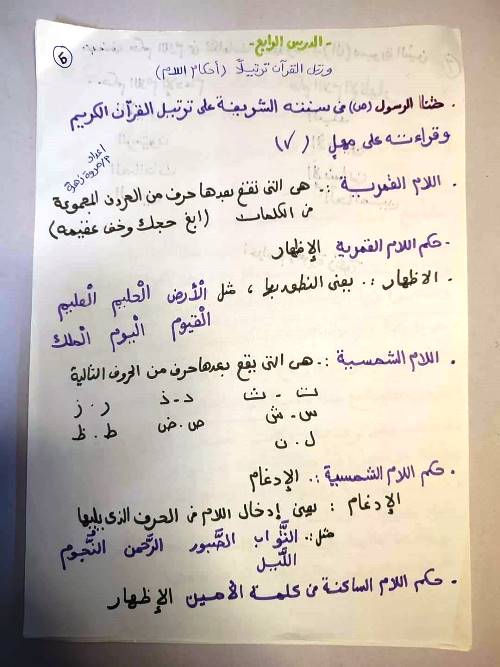 - الدرس الرابع -
٥
ورتل القرآن ترتيلاً (أحكام اللام)
. حثنا الرسول (ص) في سنته الشريفة على ترتيل القرآن الكريم
وقراءته على مهل (✓)
اعداد
م/مروة زهرة
. اللام القمرية :. هي التى تقع بعدها حرف من الحروف المجموعة
في الكلمات (ابغ حجك وخف عقيمه)
. حكم اللام القمرية الإظهار
. الاظهار :. يعنى النطق بها ، مثل الْأرض الْحليم الْعليم
الْقيوم الْيوم الْملك
. اللام الشمسية :. هى التى يقع بعدها حرف من الحروف التالية
ت - ث د - ذ ر . ز
س - ش ص . ض ط . ظ
ل . ن
. حكم اللام الشمسية :. الإدغام
الإدغام : يعنى إدخال اللام فى الحرف الذى يليها
مثل :. التَّواب الصَّبور الرَّحمن النُّجوم
اللَّيل
. حكم اللام الساكنة فى كلمة الأمين الإظهار